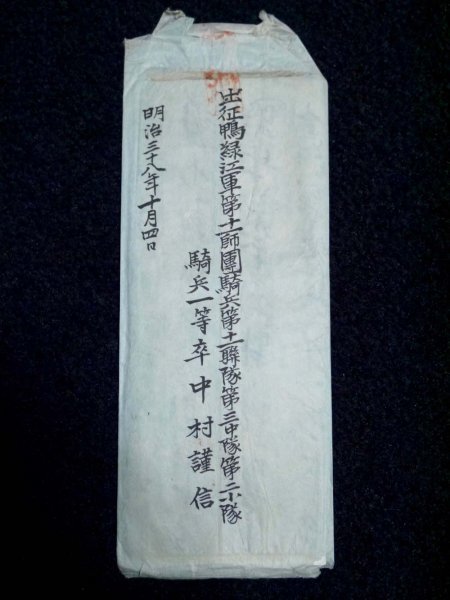 出征鴨緑江軍第十一師團騎兵第十一聯隊第三中隊第二小隊
騎兵一等卒中村謹信
明治三十八年十月四日